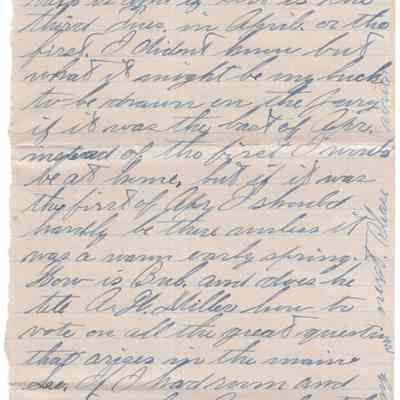 third Tues. in April or the
first. I didn't know but
what it might be my luck
to be drawn on the jury
if it was the last of Apr.
instead of the first I would
be at home, but if it was
the first of Apr I should
hardly be there unless it
was a warm early spring.
How is Bub. and does he
tell A. H. Miller how to
vote on all the great question
that arises in the main
If I had room and
next. Please write